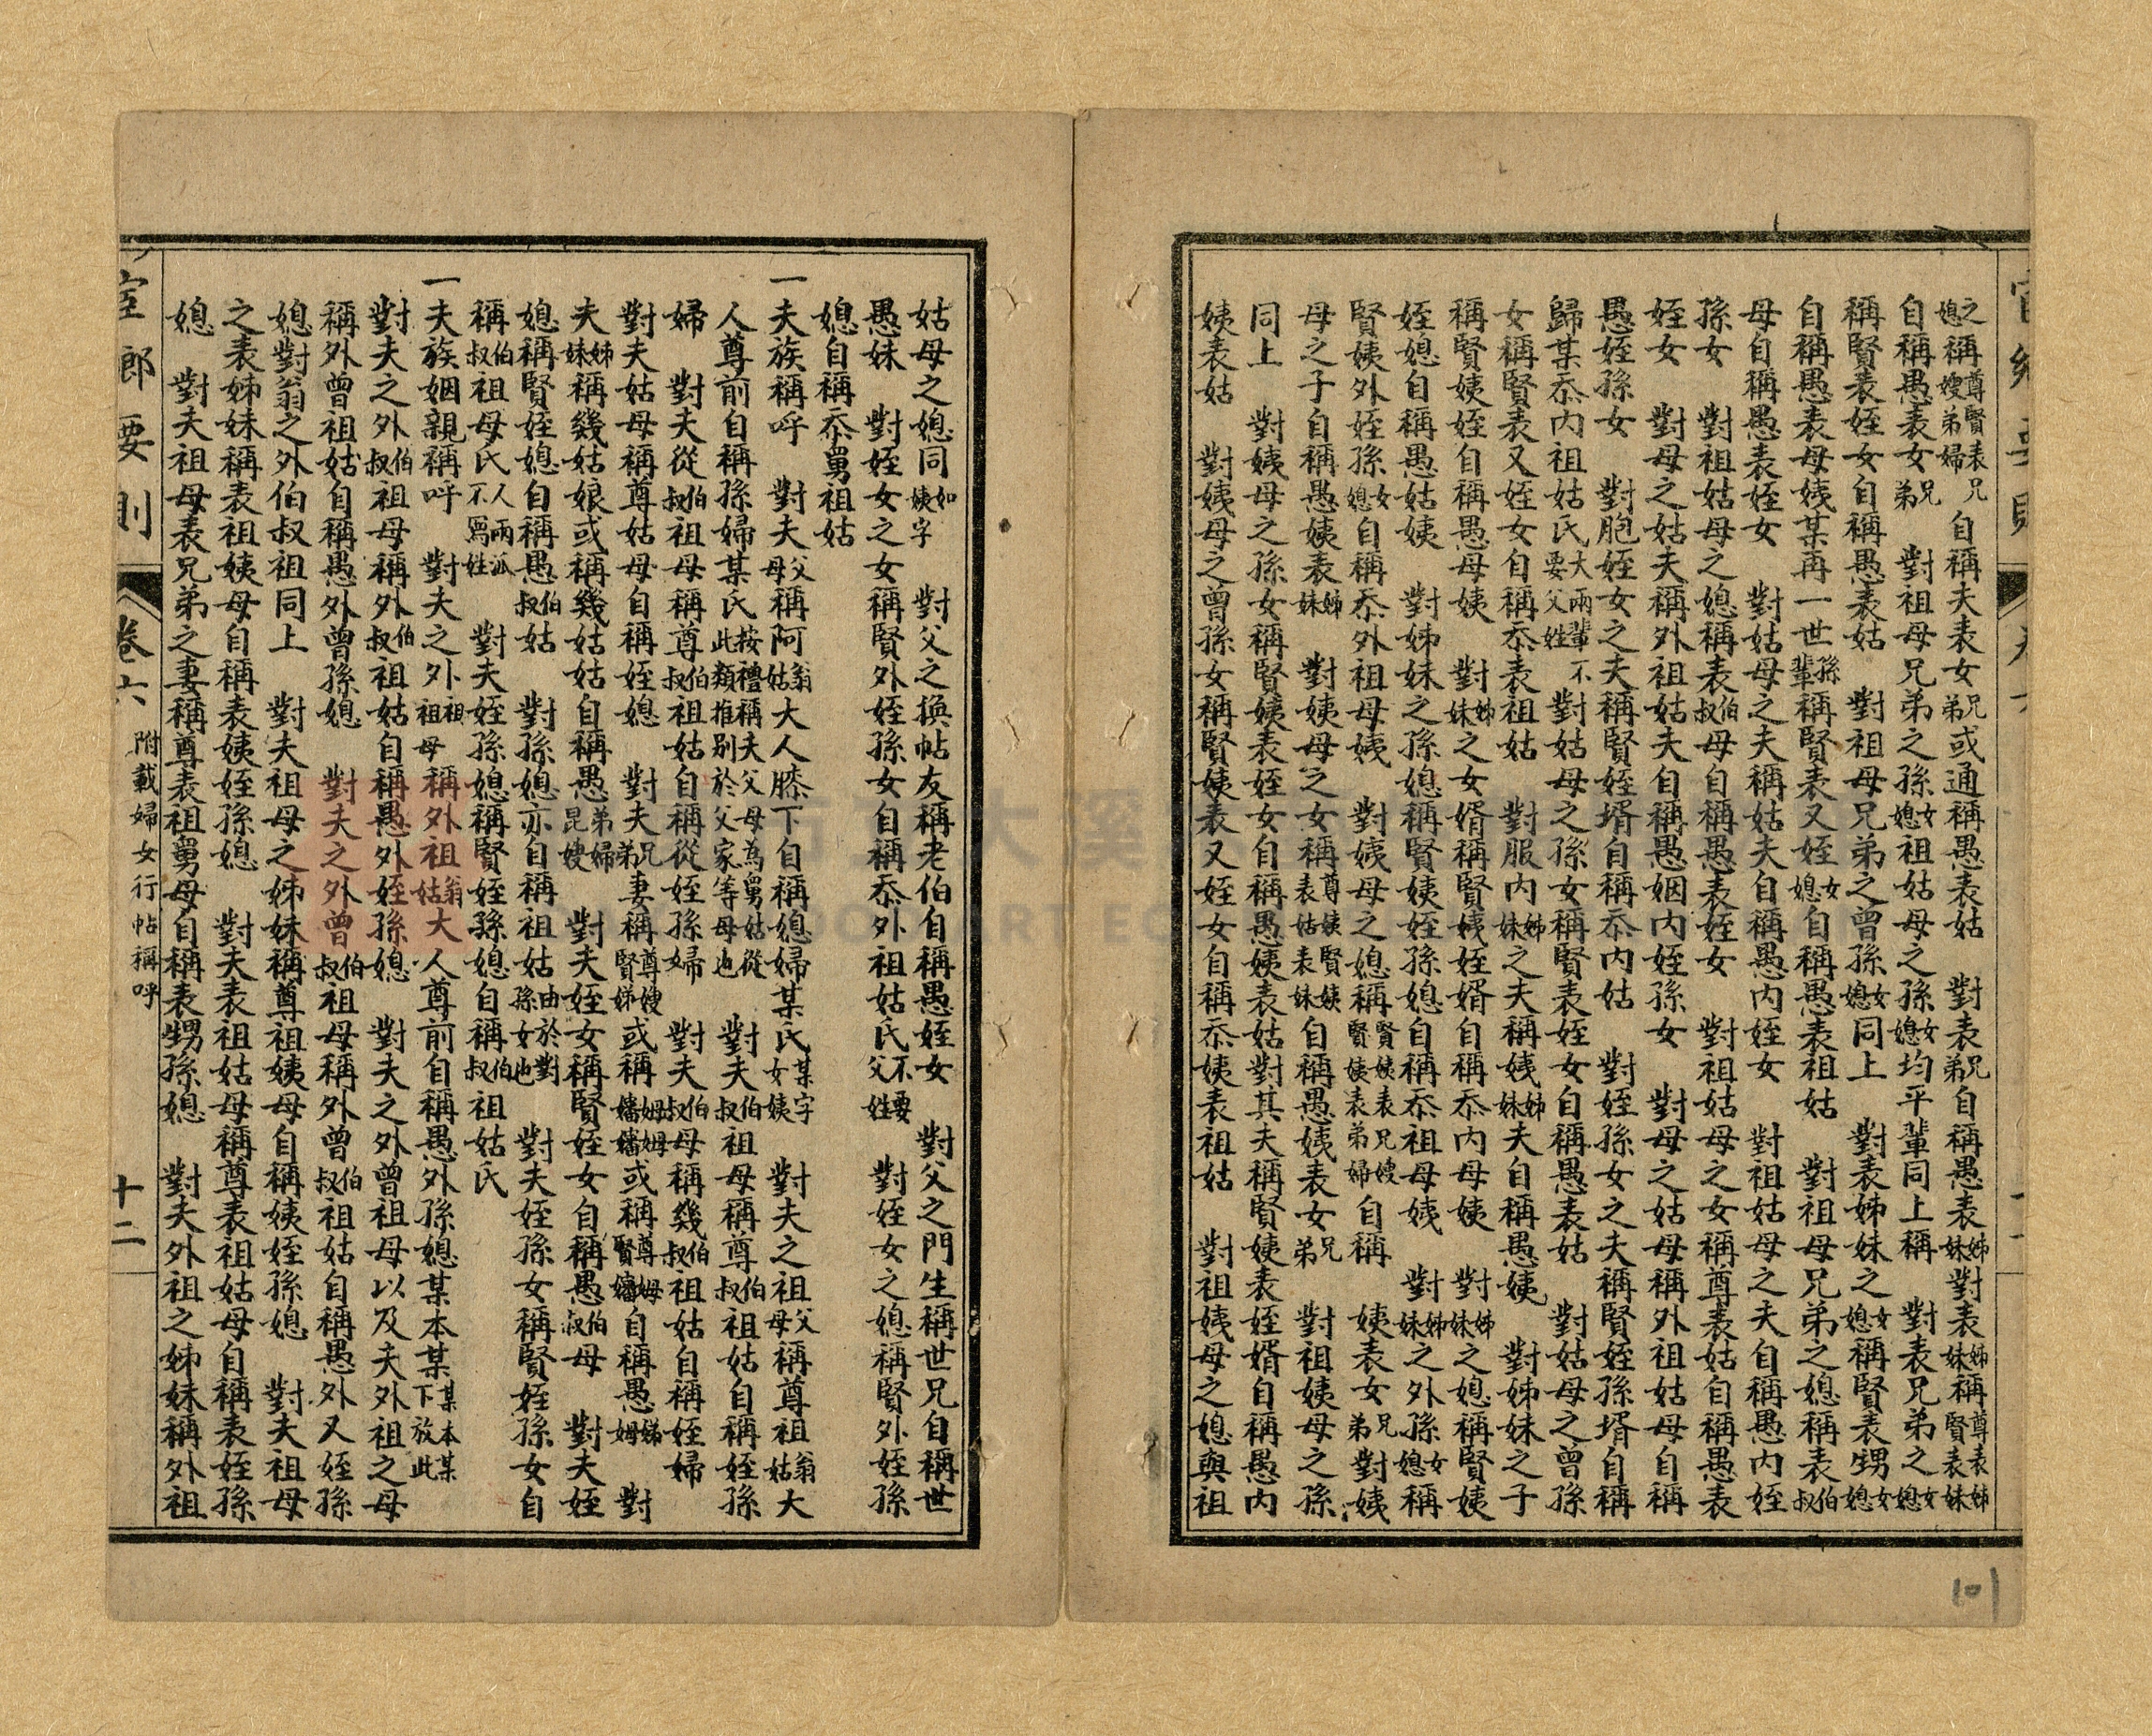 媳之稱尊嫂弟賢表兄婦自稱夫表女兄弟或通稱愚表姑　對表兄弟自稱愚表姊妹對表姊妹稱尊表姊賢表妹
自稱愚表女兄弟　對祖母兄弟之孫女媳祖姑母之孫女媳均平輩同上稱　對表兄弟之女媳
稱賢表姪女自稱愚表姑　對祖母兄弟之曾孫女媳同上　對表姊妹之女媳稱賢表甥女媳
自稱愚表母姨某再一世孫輩稱賢表又姪女媳自稱愚表祖姑　對祖母兄弟之媳稱表伯叔
母自稱愚表姪女　對姑母之夫稱姑夫自稱愚內姪女　對祖姑母之夫自稱愚內姪
孫女　對祖姑母之媳稱表伯叔母自稱愚表姪女　對祖姑母之女稱尊表姑自稱愚表
姪女　對母之姑夫稱外祖姑夫自稱愚姻內姪孫女　對母之姑母稱外祖姑母自稱
愚姪孫女　對胞姪女之夫稱賢姪壻自稱忝內姑　對姪孫女之夫稱賢姪孫壻自稱
歸某忝內祖姑氏大兩輩不要父姓　對姑母之孫女稱賢表姪女自稱愚表姑　對姑母之曾孫
女稱賢表又姪女自稱忝表祖姑　對服內姊妹之夫稱姨姊妹夫自稱愚姨　對姊妹之子
稱賢姨姪自稱愚母姨　對姊妹之女婿稱賢姨姪婿自稱忝內母姨　對姊妹之媳稱賢姨
姪媳自稱愚姑姨　對姊妹之孫媳稱賢姨姪孫媳自稱忝祖母姨　對姊妹之外孫女媳稱
賢姨外姪孫女媳自稱忝外祖母姨　對姨母之媳稱賢姨表兄嫂賢姨表弟婦自稱　姨表女兄弟對姨
母之子自稱愚姨表姊妹　對姨母之女稱尊姨表姑賢姨表妹自稱愚姨表女兄弟　對祖姨母之孫
同上　對姨母之孫女稱賢姨表姪女自稱愚姨表姑對其夫稱賢姨表姪婿自稱愚內
姨表姑　對姨母之曾孫女稱賢姨表又姪女自稱忝姨表祖姑　對祖姨母之媳與祖
姑母之媳同如姨字　對父之換帖友稱老伯自稱愚姪女　對父之門生稱世兄自稱世
愚妹　對姪女之女稱賢外姪孫女自稱忝外祖姑氏不要父姓　對姪女之媳稱賢外姪孫
媳自稱忝舅祖姑
一夫族稱呼　對夫父母稱阿翁姑大人膝下自稱媳婦某氏某字女姨　對夫之祖父母稱尊祖翁姑大
人尊前自稱孫婦某氏按禮稱夫父母為舅姑從此類推別於父家等母也　對夫伯叔祖母稱尊伯叔祖姑自稱姪孫
婦　對夫從伯叔祖母稱尊伯叔祖姑自稱從姪孫婦　對夫伯叔母稱幾伯叔祖姑自稱姪婦
對夫姑母稱尊姑母自稱姪媳　對夫兄弟妻稱尊嫂賢娣或稱姆姆嬸嬸或稱尊姆賢嬸自稱愚娣姆　對
夫姊妹稱幾姑娘或稱幾姑姑自稱愚弟婦昆嫂　對夫姪女稱賢姪女自稱愚伯叔母　對夫姪
媳稱賢姪媳自稱愚伯叔姑　對孫媳亦自稱祖姑由於對孫女也　對夫姪孫女稱賢姪孫女自
稱伯叔祖母氏人兩派不寫姓　對夫姪孫媳稱賢姪孫媳自稱伯叔祖姑氏
一夫族姻親稱呼　對夫之外祖祖母稱外祖翁姑大人尊前自稱愚外孫媳某本某某本某下放此
對夫之外伯叔祖母稱外伯叔祖姑自稱愚外姪孫媳　對夫之外曾祖母以及夫外祖之母
稱外曾祖姑自稱愚外曾孫媳　對夫之外曾伯叔祖母稱外曾伯叔祖姑自稱愚外又姪孫
媳對翁之外伯叔祖同上　對夫祖母之姊妹稱尊祖姨母自稱姨姪孫媳　對夫祖母
之表姊妹稱表祖姨母自稱表姨姪孫媳　對夫表祖姑母稱尊表祖姑母自稱表姪孫
媳　對夫祖母表兄弟之妻稱尊表祖舅母自稱表甥孫媳　對夫外祖之姊妹稱外祖
卷六　附載婦女行帖稱呼　十二